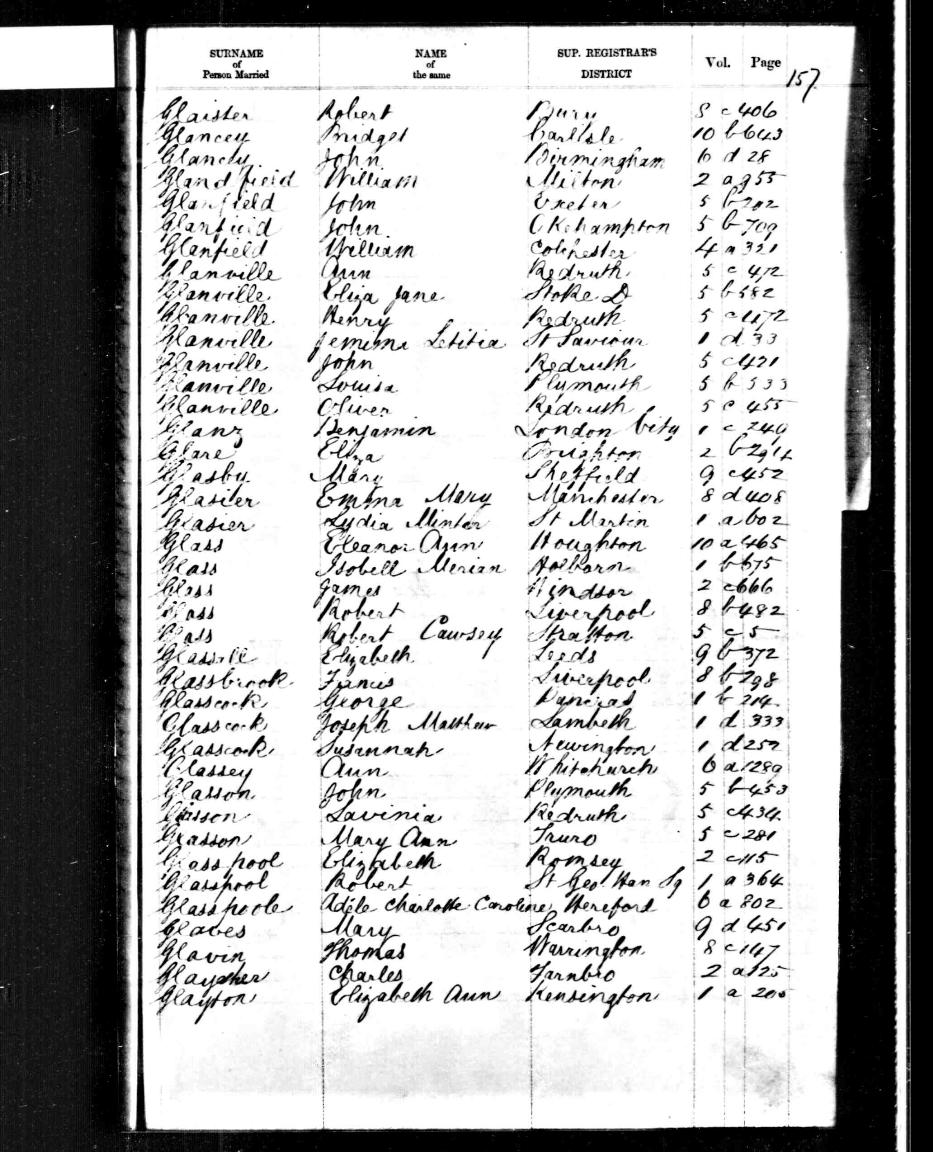 SURNAME of Person Married NAME of the same SUP. REGISTRAR'S DISTRICT Vol. Page
157
Glaister Robert Bury 8 c 406
Glancey Bridget Carlisle 10 b 643
Glancey John Birmingham 6 d 28
Glandfield William Milton 2 a 955
Glanfield John Exeter 5 b 202
Glanfield John Okehampton 5 b 709
Glanfield William Colchester 4 a 321
Glanville Ann Redruth 5 c 472
Glanville Eliza Jane Stoke D 5 b 582
Glanville Henry Redruth 5 c
Glanville Jemima Letitia St Saviour 1 d 33
Glanville John Redruth 5 c 421
Glanville Louisa Plymouth 5 b 533
Glanville Oliver Redruth 5 c 455
Glanz Benjamin London City 1 c 249
Glare Eliza Brighton 2 b
Glasby Mary Sheffield 9 c 452
Glasier Emma Mary Manchester 8 d 408
Glasier Lydia Minter St Martin 1 a 602
Glass Eleanor Ann Houghton 10 a 465
Glass Isobell Merian Holborn 1 b 675
Glass James Windsor 2 c 666
Glass Robert Liverpool 8 b 482
Glass Robert Cawsey Stratton 5 c 5
Glassell Elizabeth Leeds 9 b 372
Glassbrook Francis Liverpool 8 b 298
Glasscock George Pancras 1 b 214
Glasscock Joseph Matthew Lambeth 1 d 333
Glasscock Susannah Newington 1 d 252
Glassey Ann Whitchurch 6 a 1289
Glasson John Plymouth 5 b 453
Glasson Lavinia Redruth 5 c 434
Glasson Mary Ann Truro 5 c 281
Glasspool Elizabeth Romsey 2 c 115
Glasspool Robert St Geo. Han Sq 1 a 364
Glasspoole Adele Charlotte Caroline Hereford 6 a 802
Glaves Mary Scarbro 9 d 451
Glavin Thomas Warrington 8 c 147
Glaysher Charles Farnbro 2 a 125
Glayton Elizabeth Ann Kensington 1 a 205